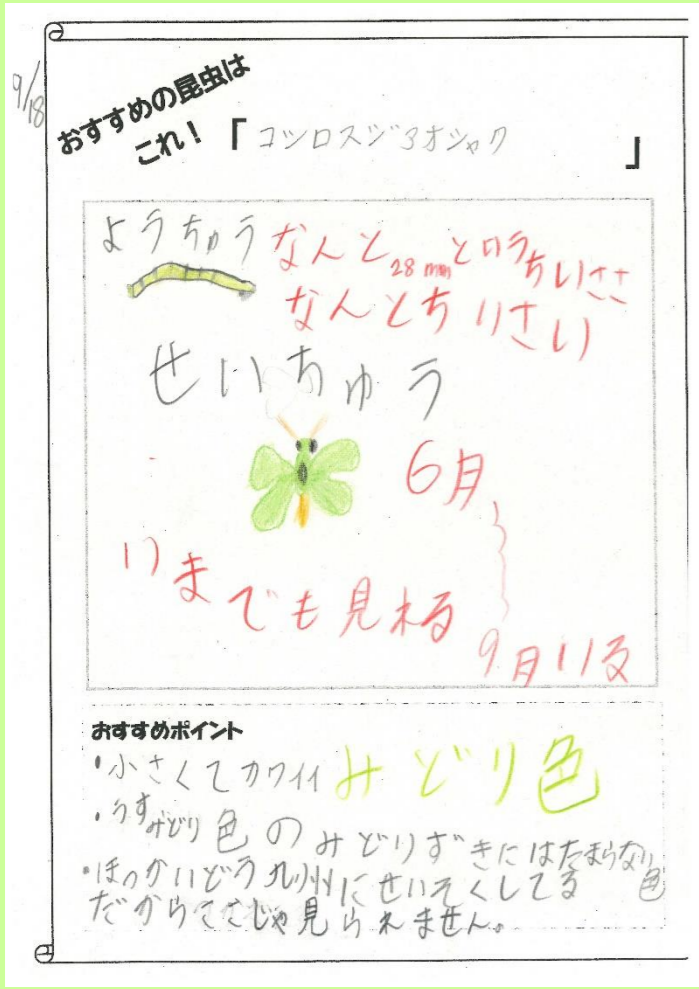 9/18
おすすめの昆虫は
これ！「コシロスジアオシャク」
ようちゅう
なんと28mmというちいささ
なんとちいさい
せいちゅう
6月
〜
9月いる
いまでも見れる
おすすめポイント
・小さくてカワイイみどり色
・うすみどり色のみどりずきにはたまらない色
・ほっかいどう九州にせいそくしてる
だからここじゃ見られません。